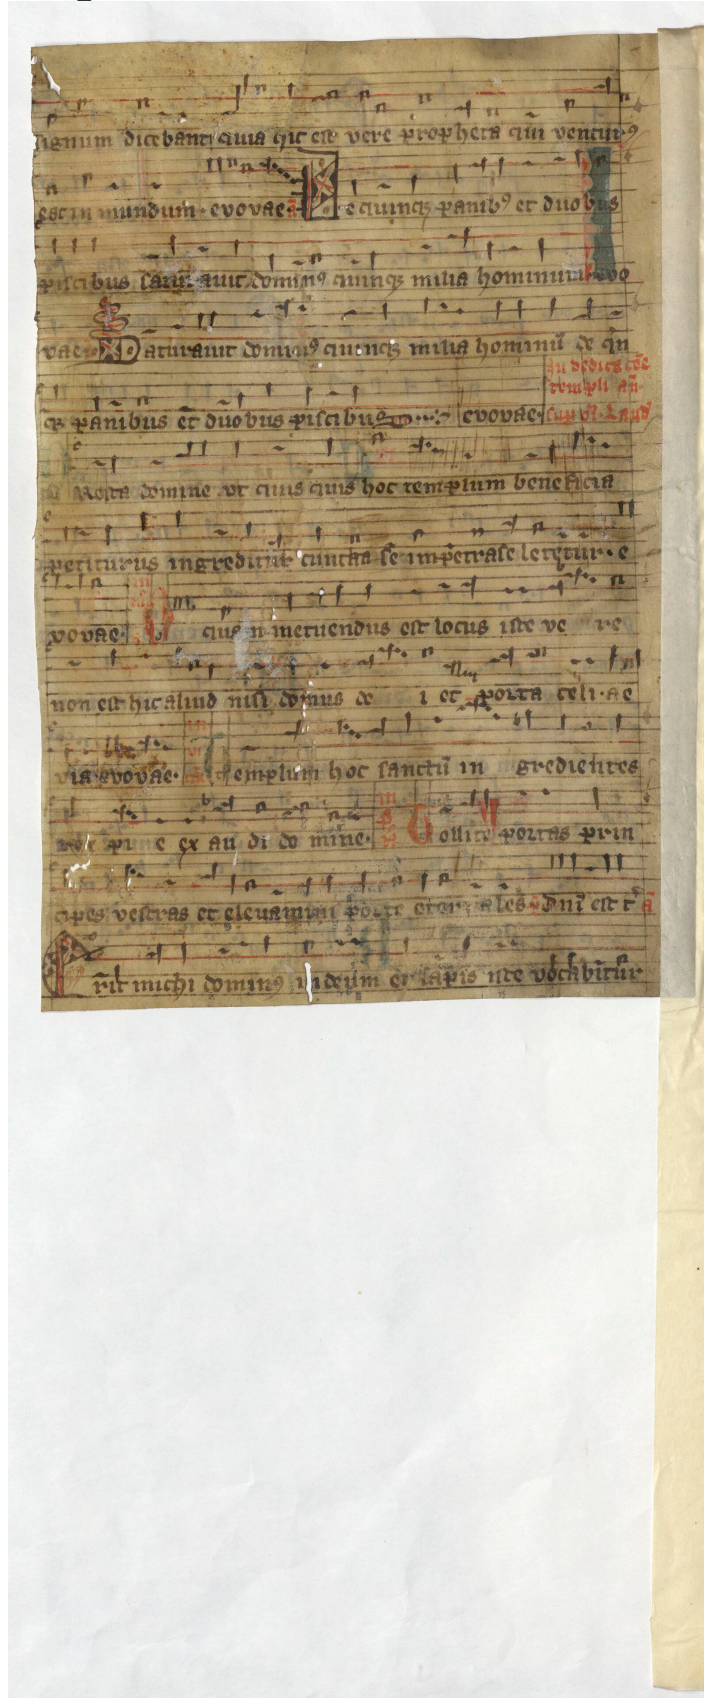 signum dicebant quia hic est vere propheta qui venturꝰ
est in mundum · evovae · De quinqꝫ panibꝰ et duobus
piscibus saturauit dominꝰ quinqꝫ milia hominum evo
vae · Saturauit dominꝰ quinqꝫ milia hominū de qn̄
qꝫ panibus et duobus piscibus evovae ·
In dedicacōe
templi añ
sup̄ ps Laud
domine vt quis quis hoc templum beneficia
petiturus ingreditur cuncta se impetrasse letetur · e
vovae · quam metuendus est locus iste ve re
non est hic aliud nisi domus de i et porta celi · ae
via evovae · Templum hoc sanctū in gredientes
ex au di do mine ·
Tollite portas prin
cipes vestras et eleuamini porte eternales Dnī est t̄ra
Erit michi dominꝰ in deum et lapis iste vocabitur